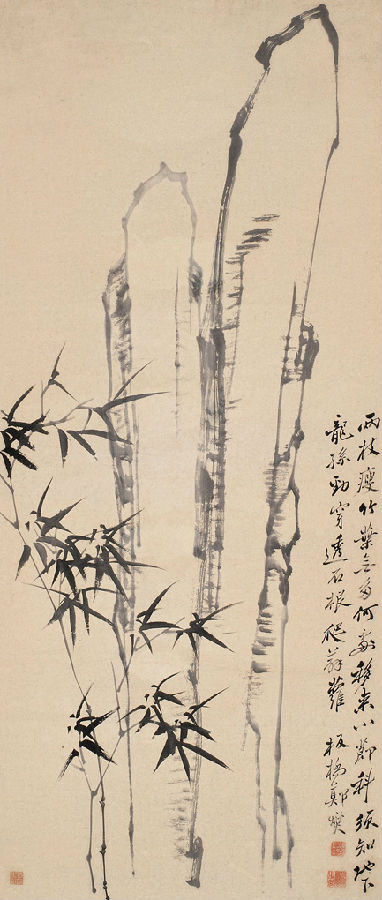 兩枝瘦竹葉無多何移來科須知地下
龍孫勁穿透石根爬薜蘿 板橋鄭燮